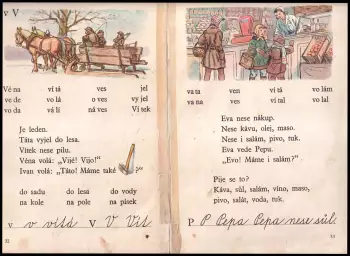 v V
Vé na ví tá ves jel
ve de vo lá o ves vy jel
vo da vá lí ná ves Ví tek
Je leden.
Táta vyjel do lesa.
Vítek nese pilu.
Véna volá: „Vijé! Vijo!"
Ivan volá: „Táto! Máme také
do sadu do lesa do vody
na kole na pole na písek
v v vítá V V Vít
32
va ta ves ví tá vo lám
va na ves ví tal vo lal
Eva nese nákup.
Nese kávu, olej, maso.
Nese i salám, pivo, sůl.
Eva vede Pepu.
„Evo! Máme i salám?"
Pije se to?
Káva, sůl, salám, víno, maso,
pivo, salát, voda, ruk.
P P Pepa Pepa nese sůl
33